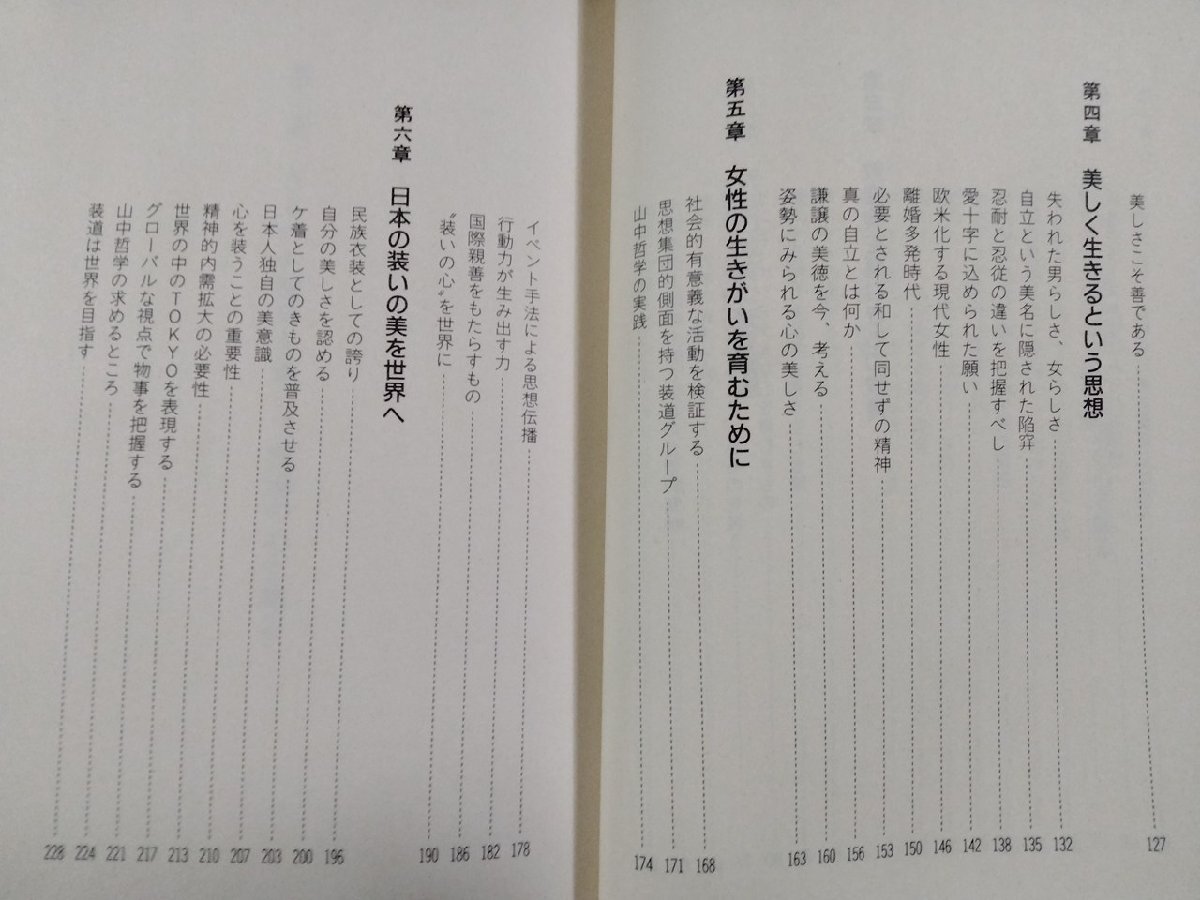 美しさこそ善である 127
第四章 美しく生きるという思想
失われた男らしさ、女らしさ 132
自立という美名に隠された陥穽 135
忍耐と忍従の違いを把握すべし 138
愛十字に込められた願い 142
欧米化する現代女性 146
離婚多発時代 150
必要とされる和して同せずの精神 153
真の自立とは何か 156
謙譲の美徳を今、考える 160
姿勢にみられる心の美しさ 163
第五章 女性の生きがいを育むために
社会的有意義な活動を検証する 168
思想集団的側面を持つ装道グループ 171
山中哲学の実践 174
イベント手法による思想伝播 178
行動力が生み出す力 182
国際親善をもたらすもの 186
〝装いの心〟を世界に 190
第六章 日本の装いの美を世界へ
民族衣装としての誇り 196
自分の美しさを認める 200
ケ着としてのきものを普及させる 203
日本人独自の美意識 207
心を装うことの重要性 210
精神的内需拡大の必要性 213
世界の中のTOKYOを表現する 217
グローバルな視点で物事を把握する 221
山中哲学の求めるところ 224
装道は世界を目指す 228